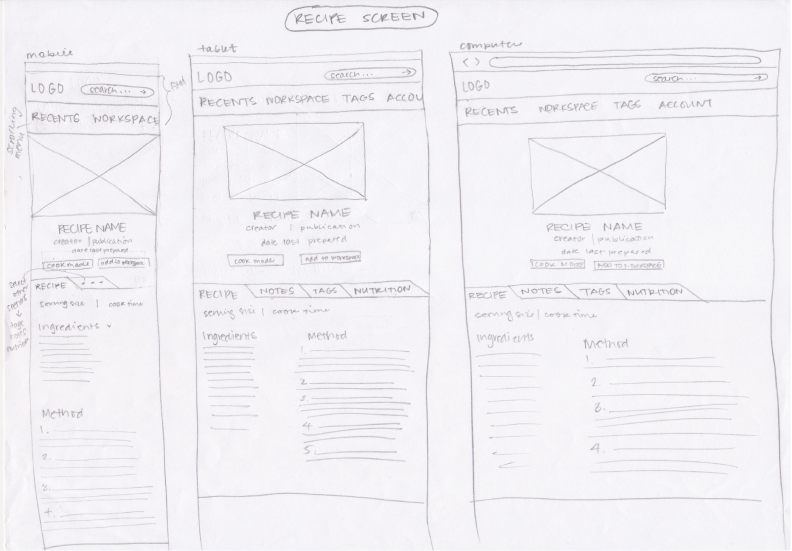 RECIPE SCREEN
mobile
LOGO
search... →
fixed
RECENTS WORKSPACE
scrolling
menu
RECIPE NAME
creator | publication
date last prepared
cook mode
add to workspace
RECIPE
...
serving size | cook time
Ingredients
Method
1.
2.
3.
4.
tablet
LOGO
search... →
RECENTS WORKSPACE TAGS ACCOU
RECIPE NAME
creator | publication
date last prepared
cook mode
add to workspace
RECIPE NOTES TAGS NUTRITION
serving size | cook time
Ingredients
Method
1.
2.
3.
4.
5.
computer
< >
LOGO
search... →
RECENTS WORKSPACE TAGS ACCOUNT
RECIPE NAME
creator | publication
date last prepared
COOK MODE
ADD TO WORKSPACE
RECIPE NOTES TAGS NUTRITION
serving size | cook time
Ingredients
Method
1.
2.
3.
4.